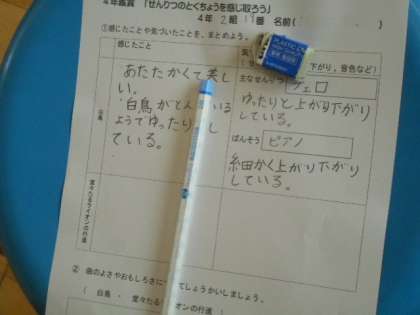 4年鑑賞 「せんりつのとくちょうを感じ取ろう」
4年 2組 11番 名前(
①感じたことや気づいたことを、まとめよう。
感じたこと
下がり、音色など)
主なせんりつ チェロ
白鳥
あたたかくて美し
い。
白鳥がとん いる
ようでゆったり し
ている。
ゆったりと上がり下がり
している。
ばんそう ピアノ
細かく上がり下がり
している。
堂々たるライオンの行進
② 曲のよさやおもしろさに てしょうかいしましょう。
( 白鳥 ・ 堂々たる イオンの行進 )